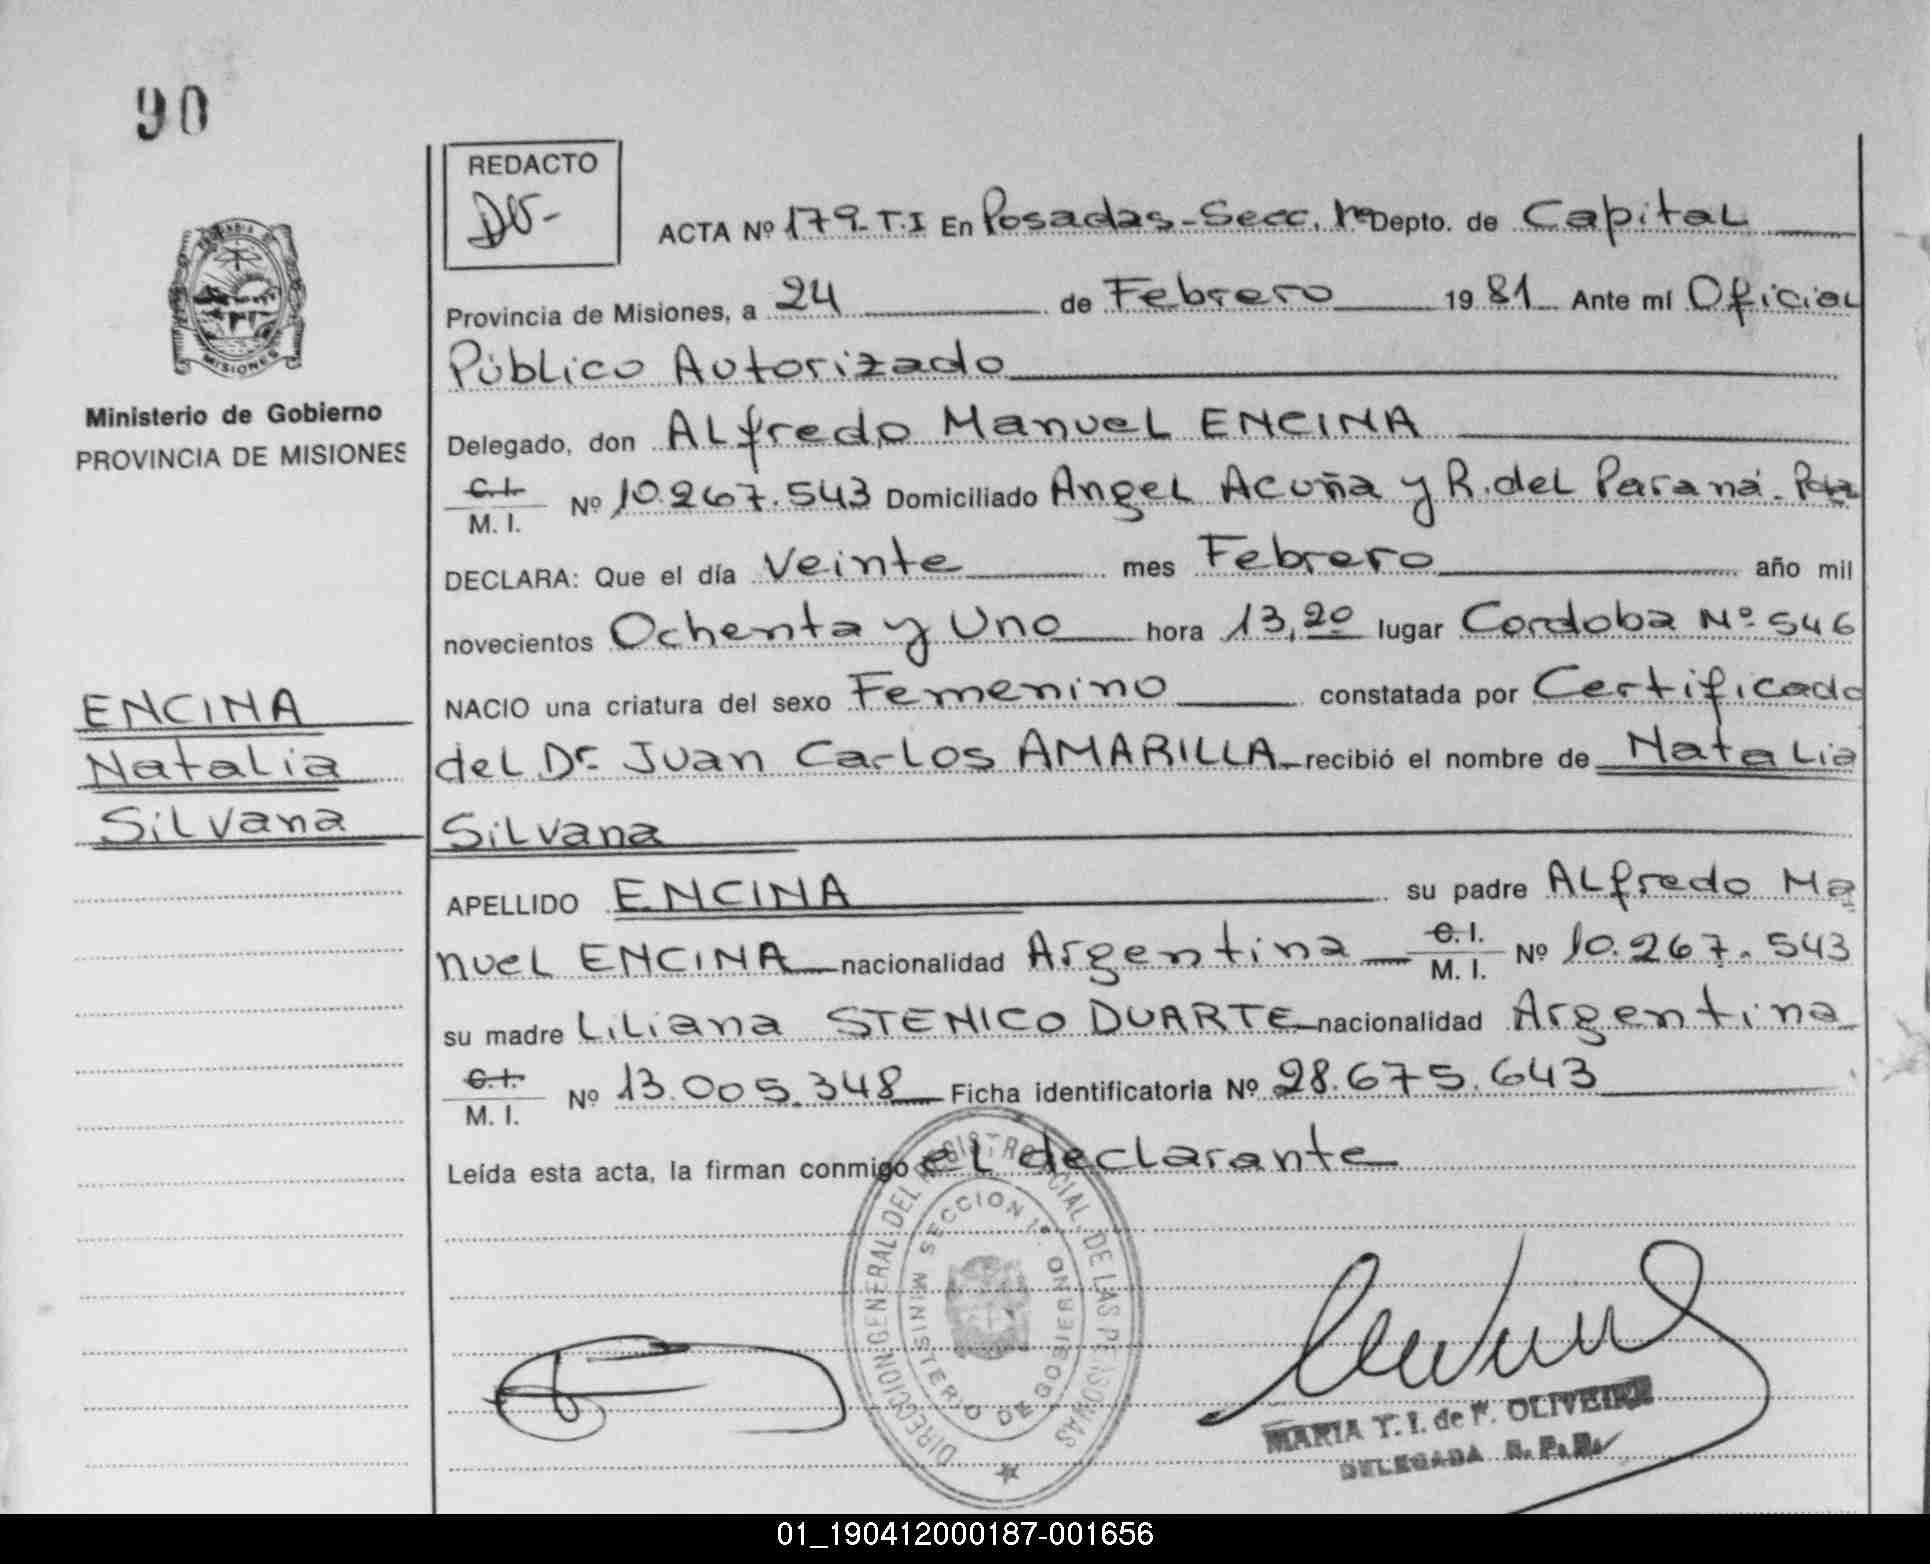 90
REDACTO
ACTA Nº 179-T.I En Posadas-Secc. 1ª Depto. de Capital
Provincia de Misiones, a 24 de Febrero 1981 Ante mí Oficial
Público Autorizado
Delegado, don Alfredo Manuel ENCINA
C.I.
M. I. Nº 10.267.543 Domiciliado Angel Acuña y R. del Paraná-Pdas
DECLARA: Que el día Veinte mes Febrero año mil
novecientos Ochenta y Uno hora 13,20 lugar Cordoba Nº 546
NACIO una criatura del sexo Femenino constatada por Certificado
del Dr. Juan Carlos AMARILLA recibió el nombre de Natalia
Silvana
APELLIDO ENCINA su padre Alfredo Ma
nuel ENCINA nacionalidad Argentina C.I.
M. I. Nº 10.267.543
su madre Liliana STENICO DUARTE nacionalidad Argentina
C.I.
M. I. Nº 13.005.348 Ficha identificatoria Nº 28.675.643
Leída esta acta, la firman conmigo el declarante
MISIONES
Ministerio de Gobierno
PROVINCIA DE MISIONES
ENCINA
Natalia
Silvana
DIRECCION GENERAL DEL REGISTRO PROVINCIAL DE LAS PERSONAS
SECCION 1ª
MINISTERIO DE GOBIERNO
MARIA T. I. de F. OLIVEIRA
DELEGADA R. P. P.
01_190412000187-001656